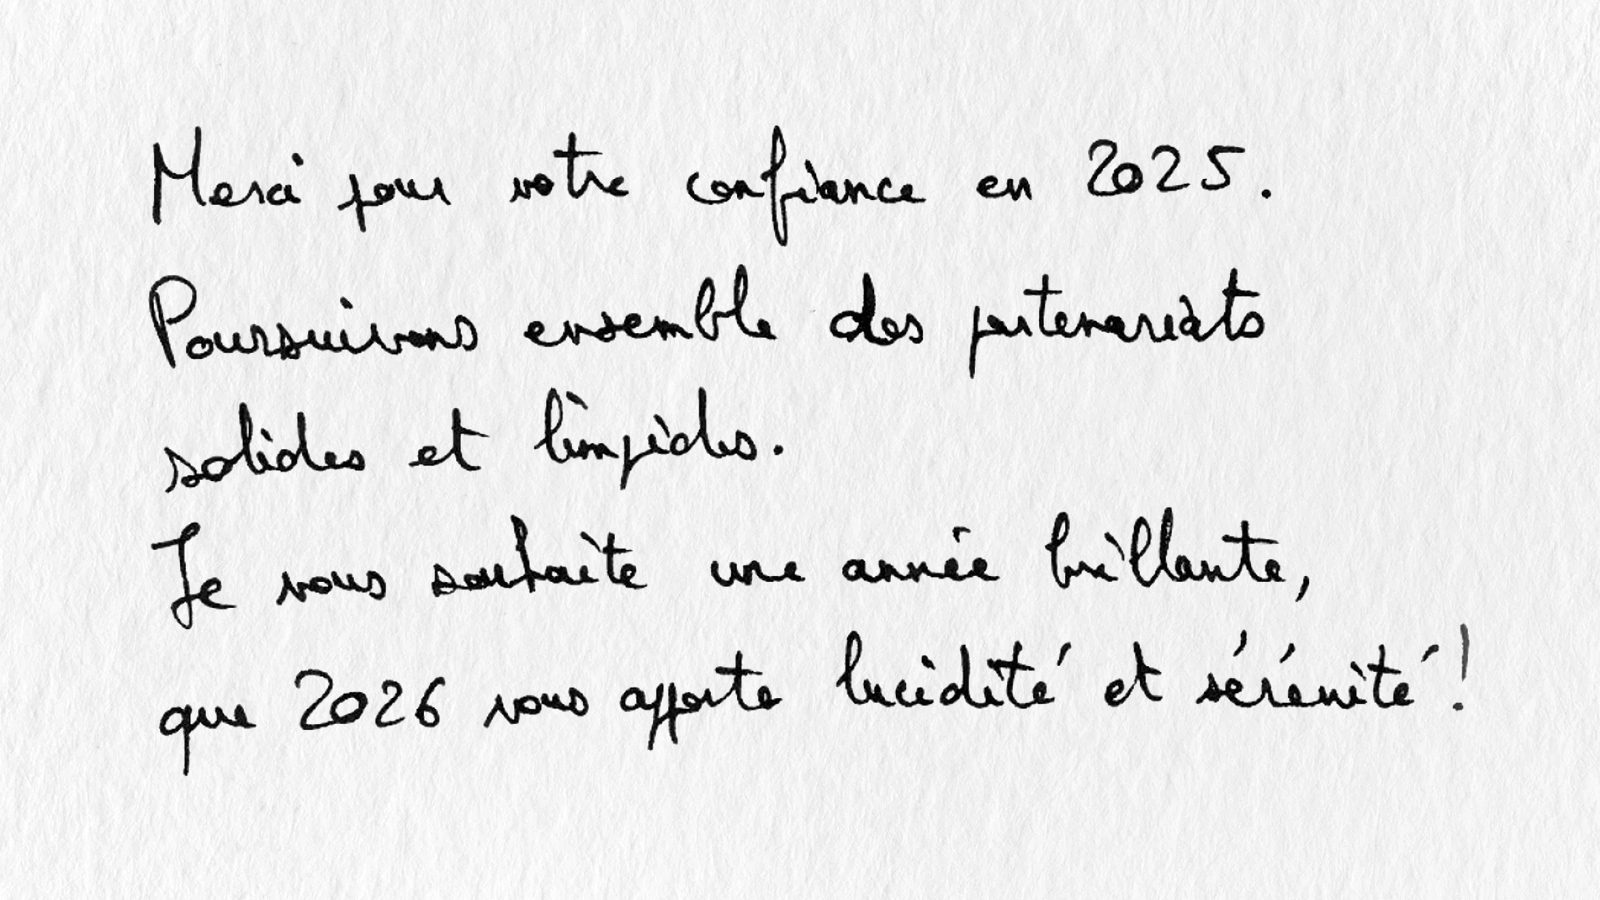 Merci pour votre confiance en 2025.
Poursuivons ensemble des partenariats
solides et limpides.
Je vous souhaite une année brillante,
que 2026 vous apporte lucidité et sérénité !